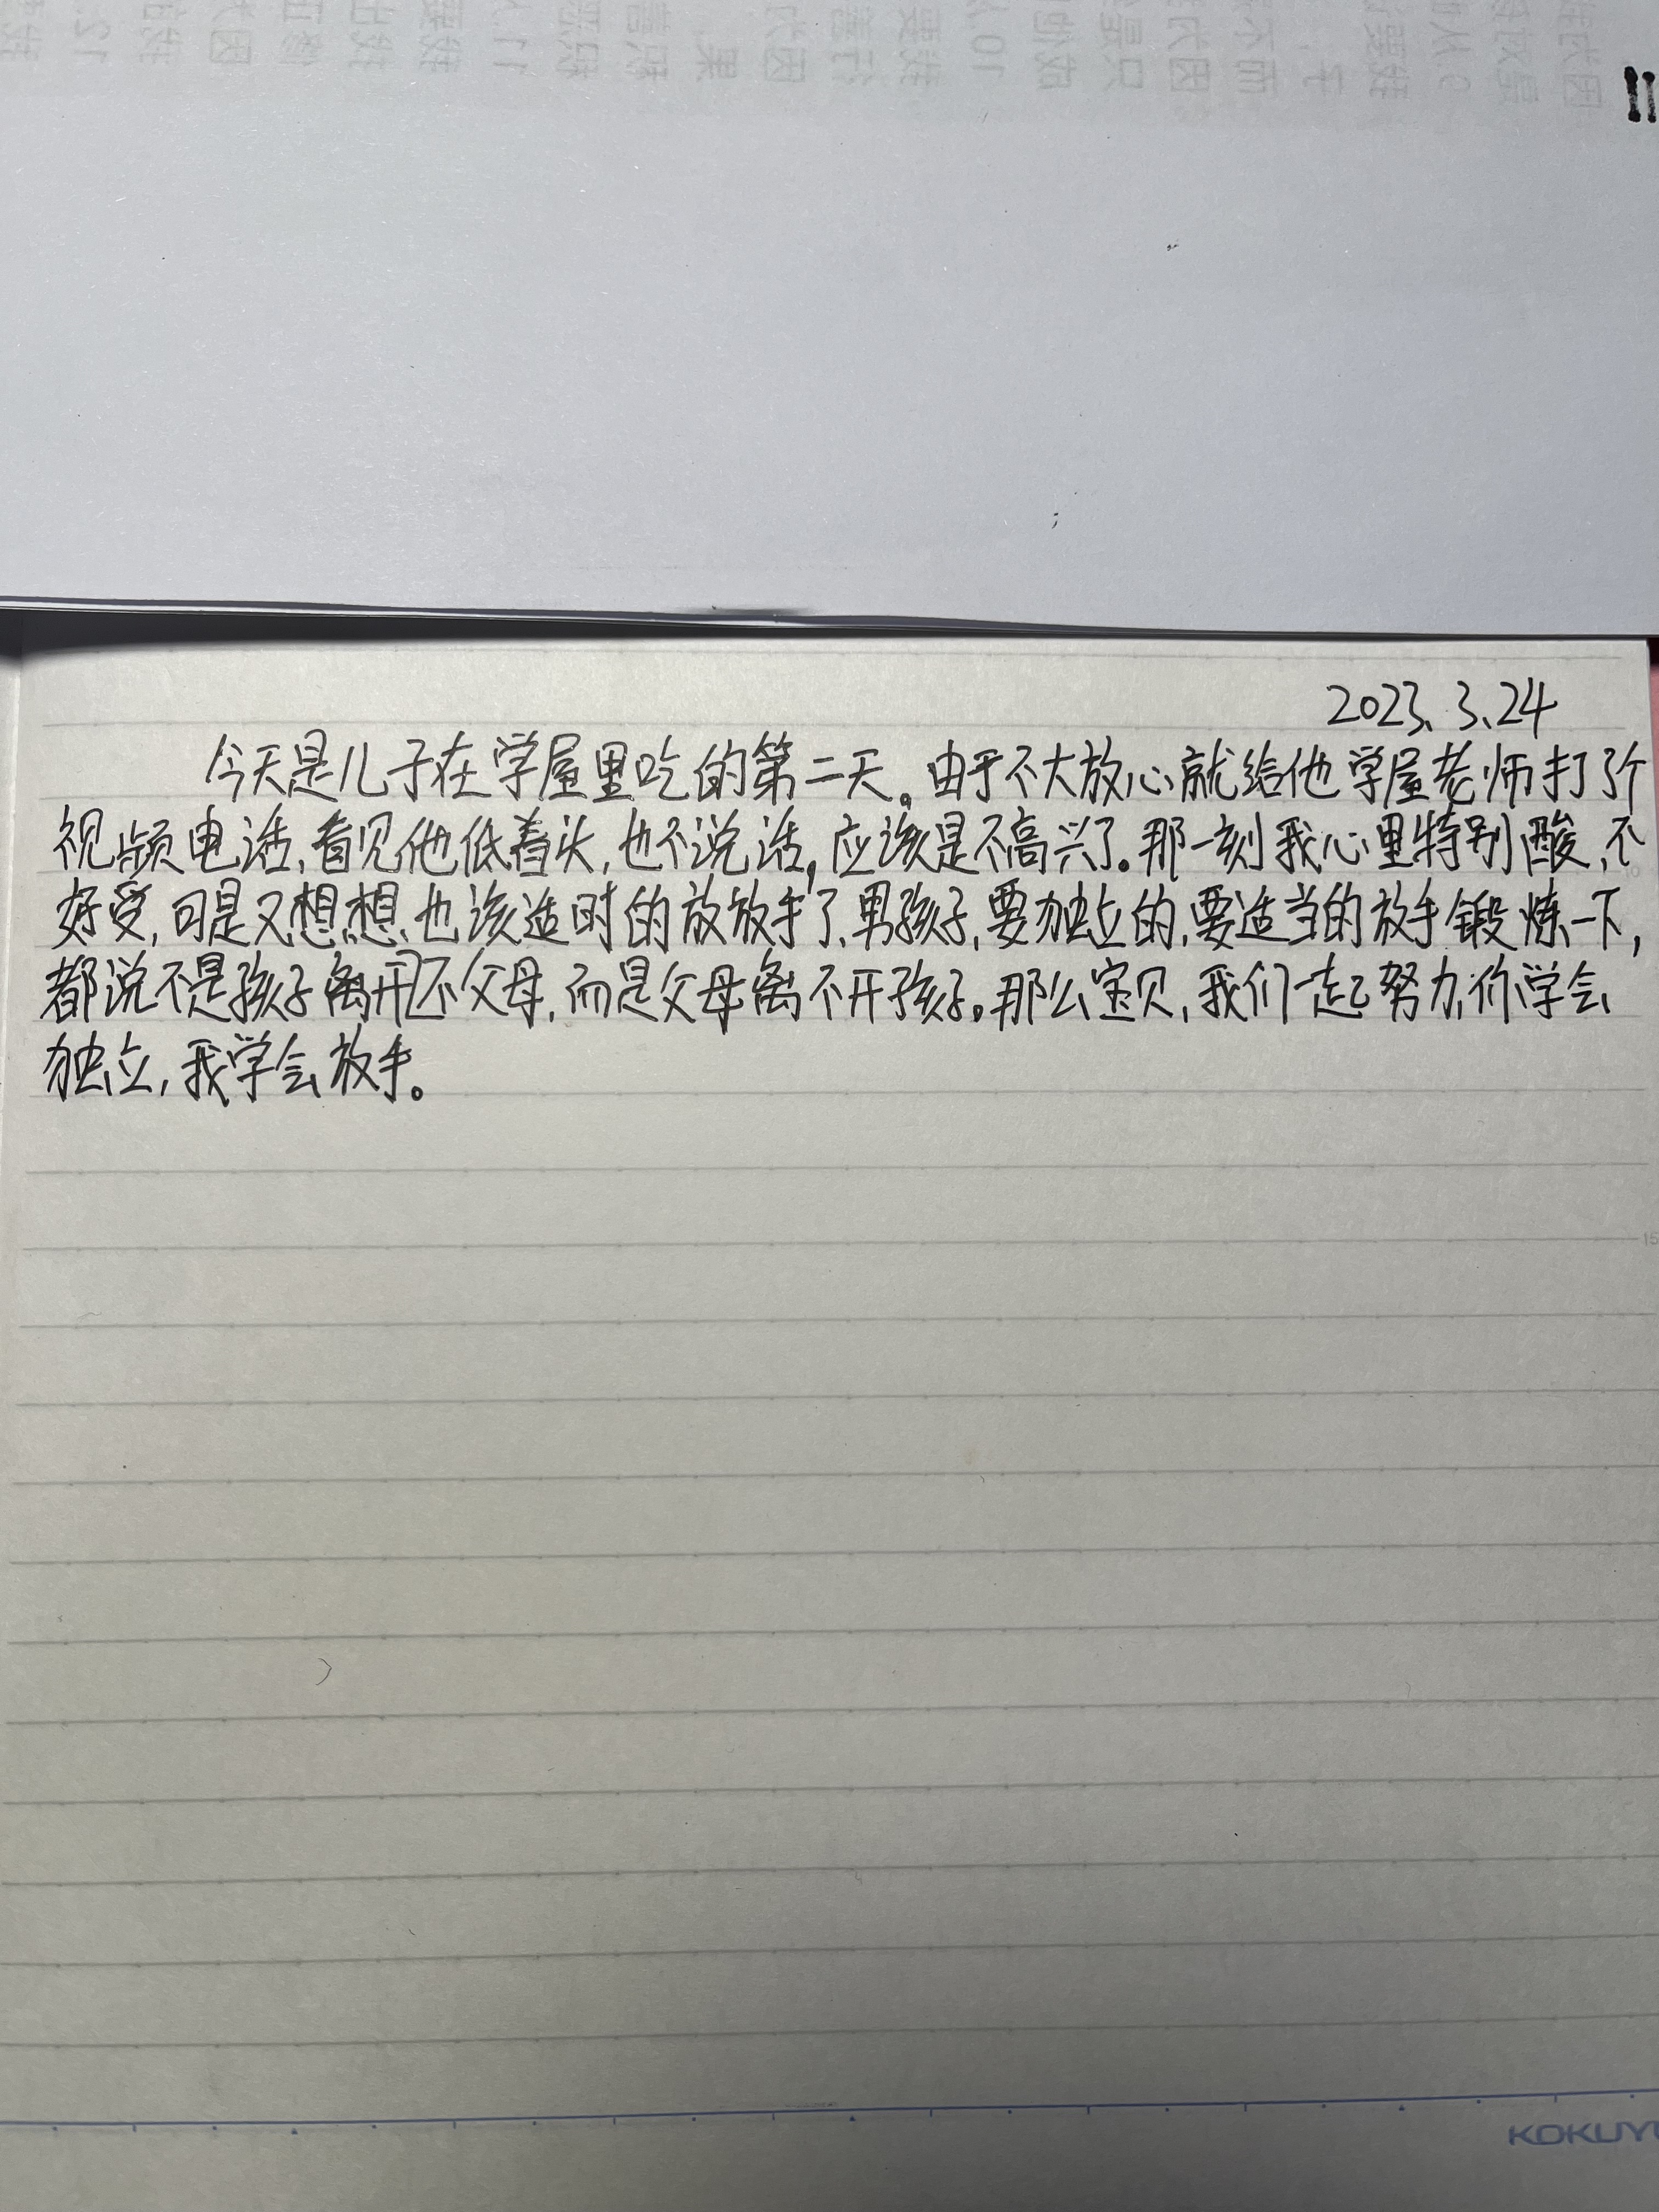 2023.3.24
今天是儿子在学屋里吃的第二天。由于不大放心就给他学屋老师打了个
视频电话,看见他低着头,也不说话,应该是不高兴了。那一刻我心里特别酸,不
好受,可是又想想,也该适时的放放手了,男孩子,要独立的,要适当的放手锻炼一下,
都说不是孩子离开不父母,而是父母离不开孩子。那么宝贝,我们一起努力,你学会
独立,我学会放手。
10
15
KOKUY